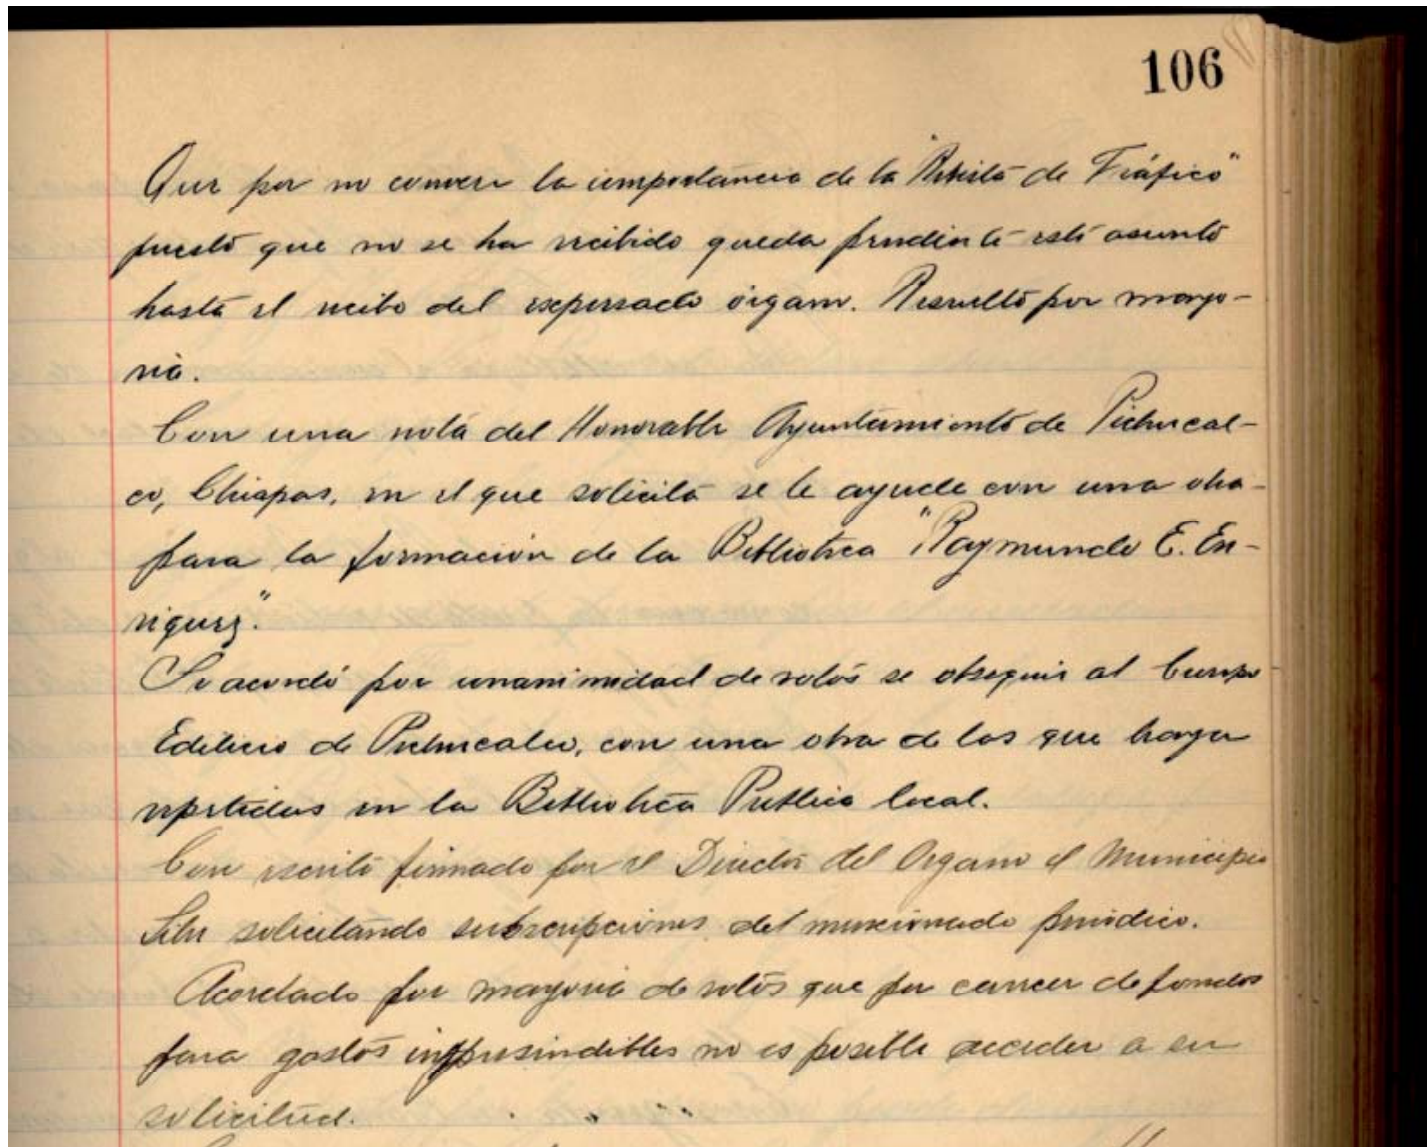 106
Que por no conocer la importancia de la "Revista de Tráfico"
puesto que no se ha recibido queda pendiente este asunto
hasta el recibo del expresado órgano. Resuelto por mayo-
ria.
Con una nota del Honorable Ayuntamiento de Pichucal-
co, Chiapas, en el que solicita se le ayude con una obra
para la formación de la Biblioteca "Raymundo E. En-
riquez".
Se acordó por unanimidad de votos se obsequie al Cuerpo
Edilicio de Pichucalco, con una obra de las que haya
repetidas en la Biblioteca Publica local.
Con escrito firmado por el Director del Organo el Municipio
solicitando subscripciones del mencionado periódico.
Acordado por mayoria de votos que por carecer de fondos
para gastos impresindibles no es posible acceder a su
solicitud.